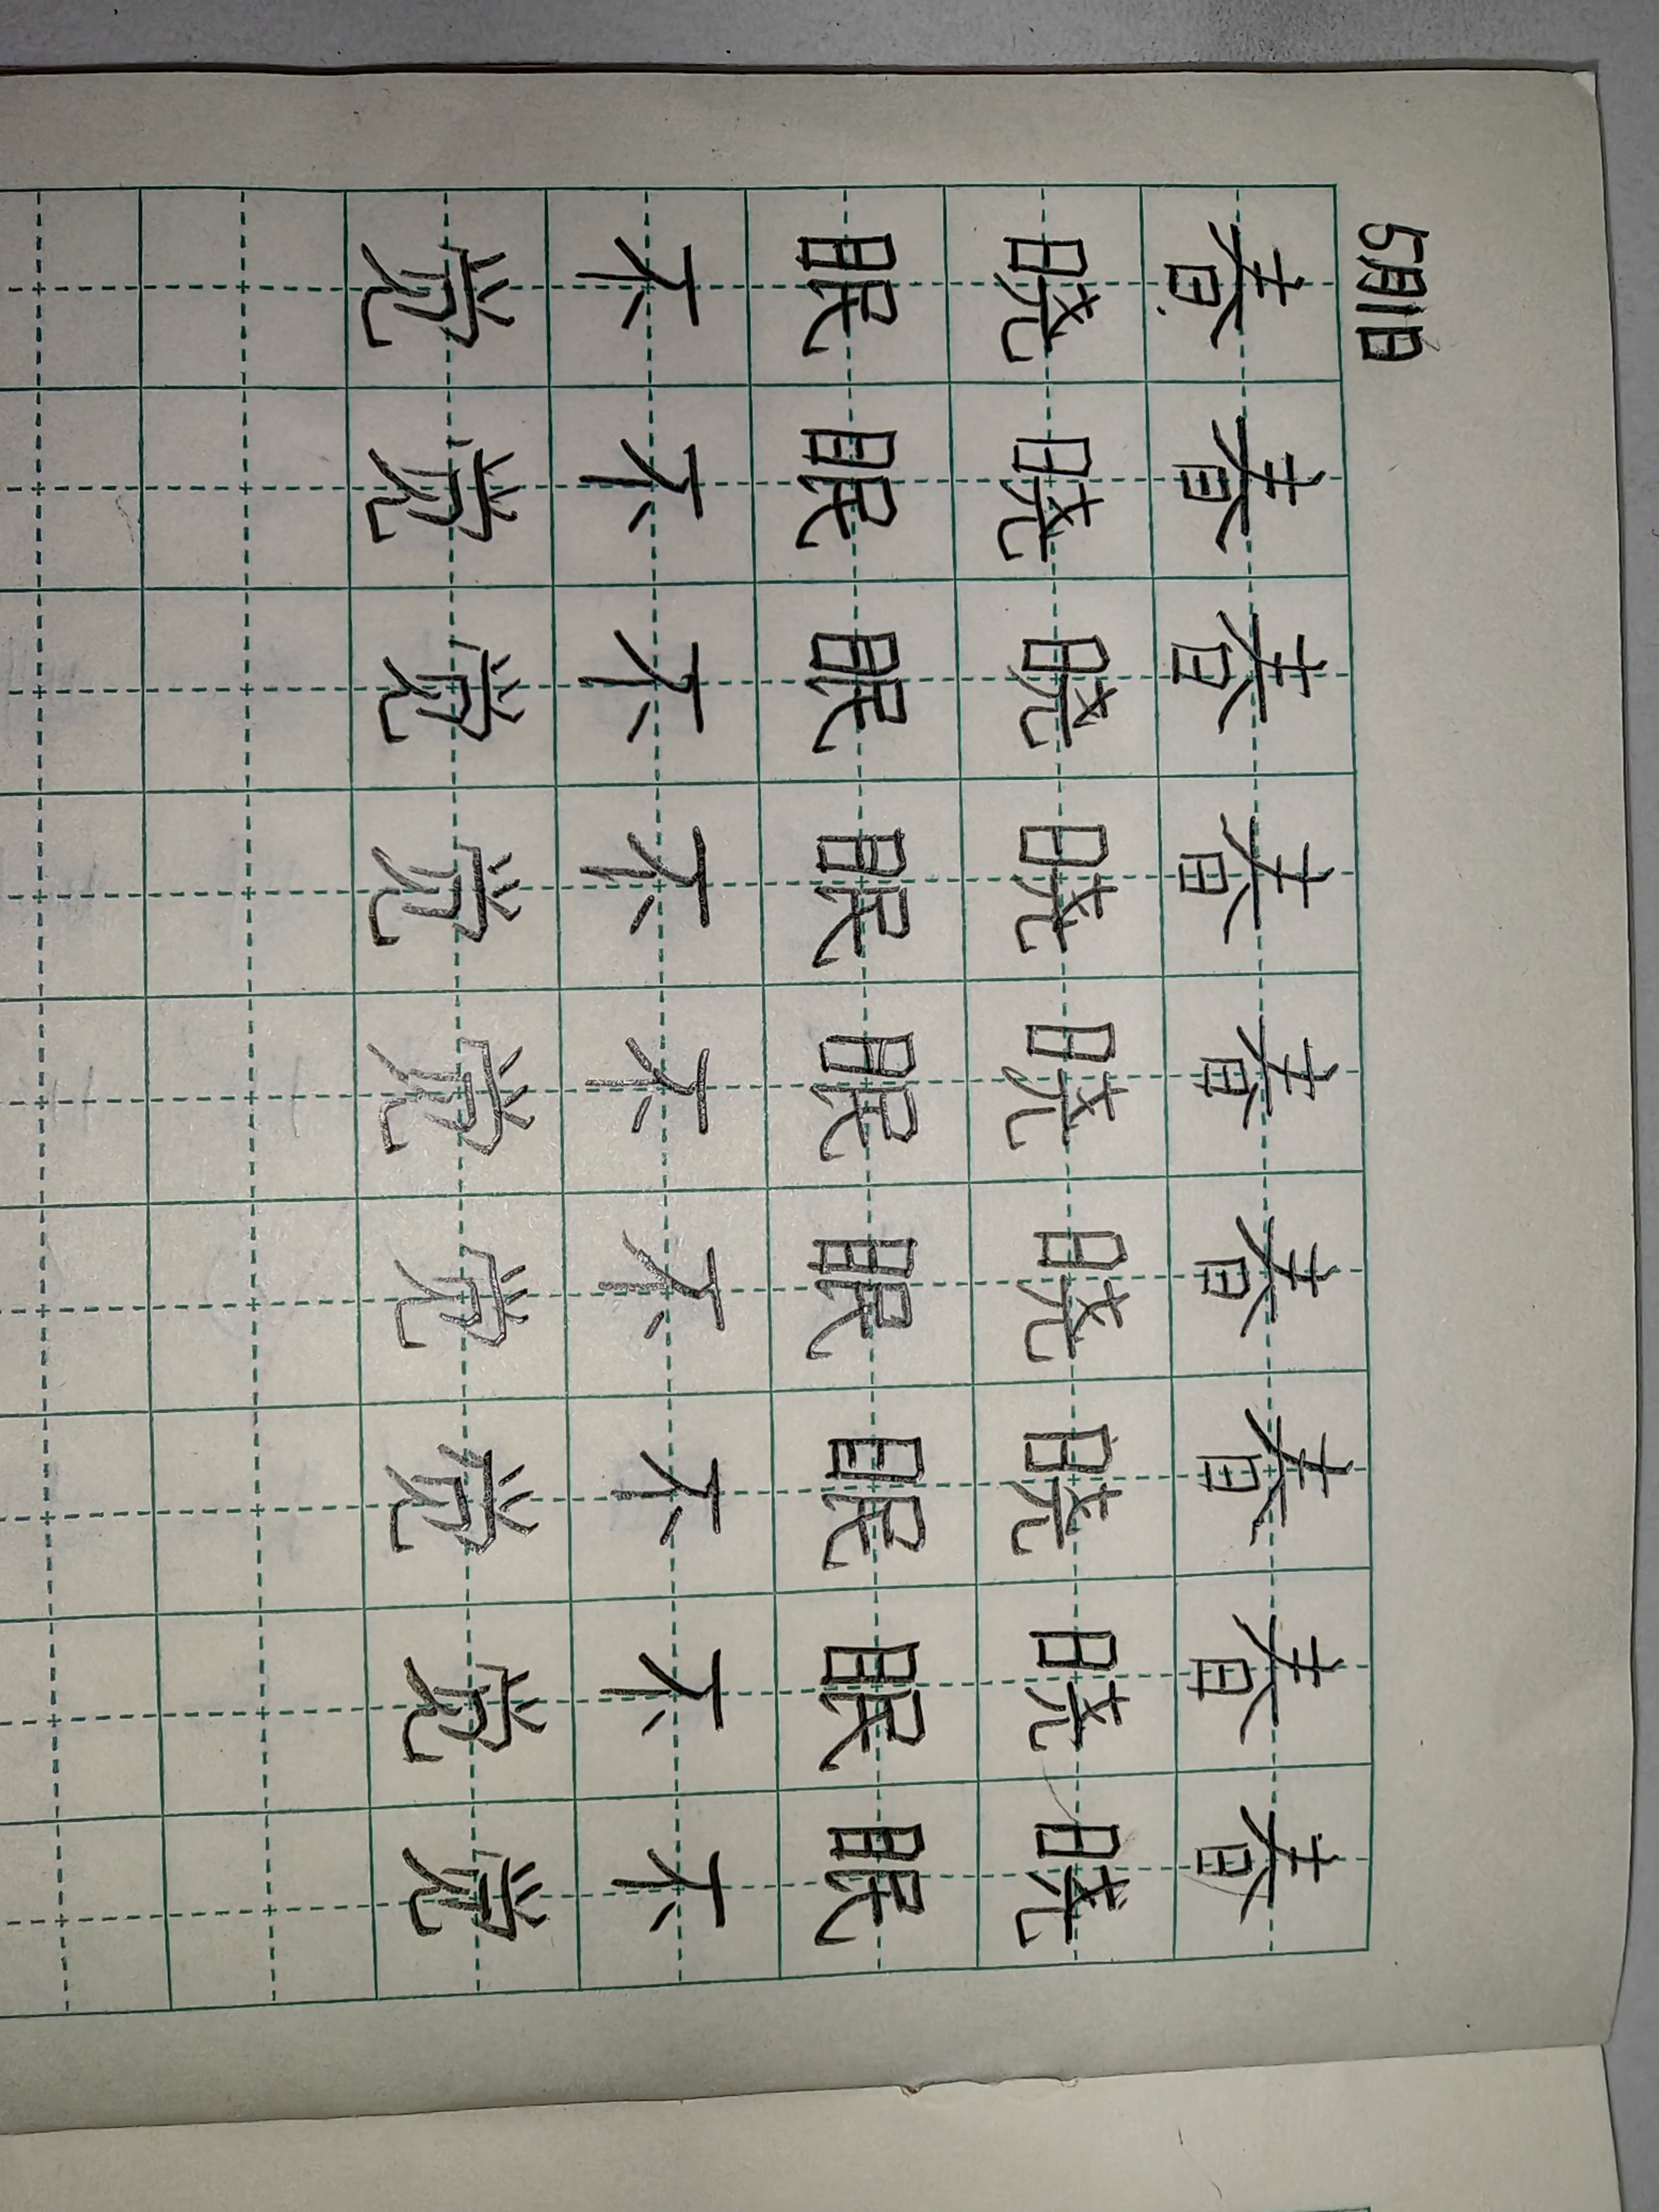 5月1日
春春春春春春春春春
晓晓晓晓晓晓晓晓晓
眠眠眠眠眠眠眠眠眠
不不不不不不不不不
觉觉觉觉觉觉觉觉觉